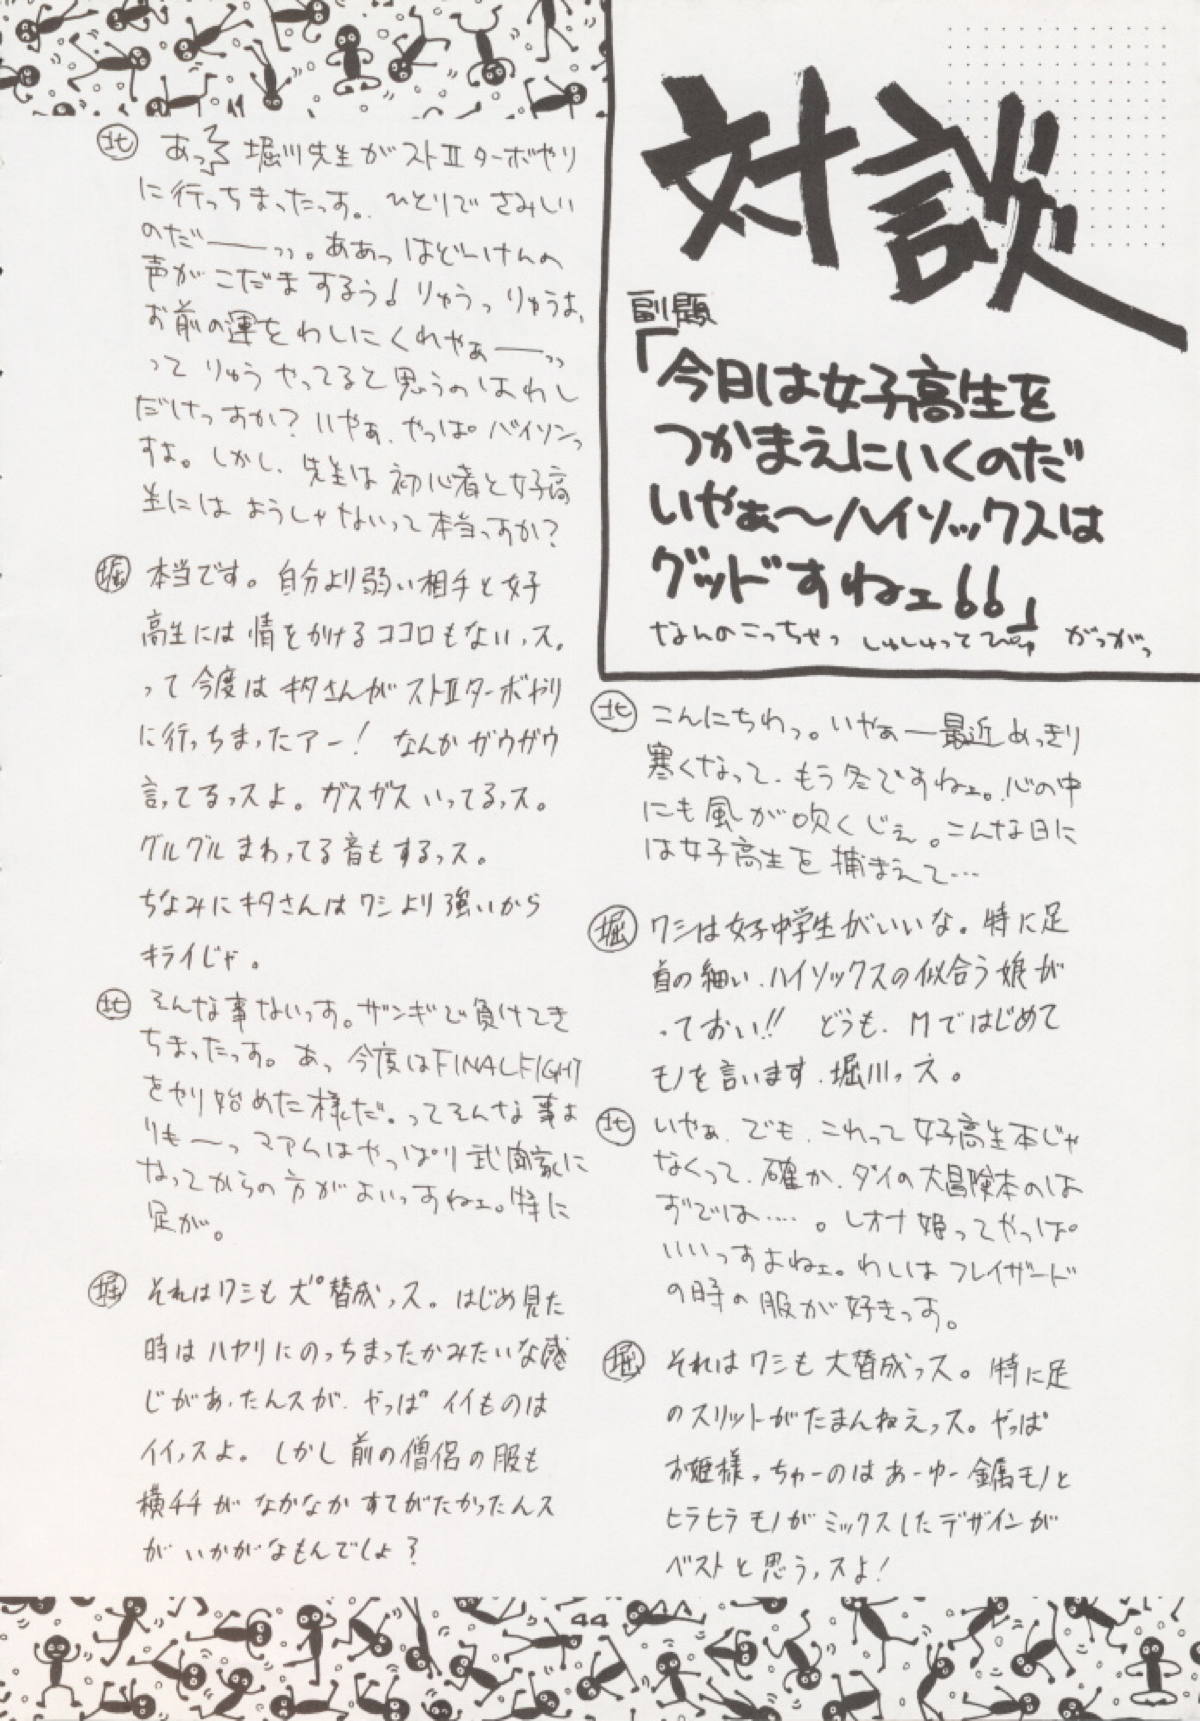 対談
副題
「今日は女子高生を
つかまえにいくのだ
いやぁ〜ハイソックスは
グッドすねェ!!」
なんのこっちゃっ しゅしゅってぴゅ がっがっ
北 こんにちわっ。いやぁー最近めっきり
寒くなって、もう冬ですねェ。心の中
にも風が吹くじぇ。こんな日に
は女子高生を捕まえて…
堀 ワシは女子中学生がいいな。特に足
首の細い、ハイソックスの似合う娘が
っておい!! どうも、Mではじめて
モノを言います、堀川ッス。
北 いやぁ、でも、これって女子高生本じゃ
なくって、確か、ダイの大冒険本のは
ずでは……。レオナ姫ってやっぱ
いいっすよねェ。わしはフレイザード
の時の服が好きっす。
堀 それはワシも大賛成ッス。特に足
のスリットがたまんねえッス。やっぱ
お姫様っちゅーのはあーゆー金属モノと
ヒラヒラモノがミックスしたデザインが
ベストと思うッスよ!
北 あっ 堀川先生がストⅡターボやり
に行っちまったっす。ひとりでさみしい
のだーっっ。ああっはどーけんの
声がこだまするぅ! りゅうっ りゅうよ、
お前の運をわしにくれやぁーっっ
って りゅうやってると思うのはわし
だけっすか? いやぁ、やっぱバイソンっ
すよ。しかし、先生は初心者と女子高
生にはようしゃないって本当っすか?
堀 本当です。自分より弱い相手と女子
高生には情をかけるココロもないッス。
って今度はキタさんがストⅡターボやり
に行っちまったアー! なんかガウガウ
言ってるッスよ。ガスガスいってるッス。
グルグルまわってる音もするッス。
ちなみにキタさんはワシより強いから
キライじゃ。
北 そんな事ないっす。ザンギで負けてき
ちまったっす。あっ 今度はFINALFIGHT
をやり始めた様だ。ってそんな事よ
りもーっ マァムはやっぱり武闘家に
なってからの方がよいっすねェ。特に
足が。
堀 それはワシも大賛成ッス。はじめ見た
時はハヤリにのっちまったかみたいな感
じがあったんスが、やっぱイイものは
イイッスよ。しかし前の僧侶の服も
横チチがなかなかすてがたかったんス
がいかがなもんでしょ?
44